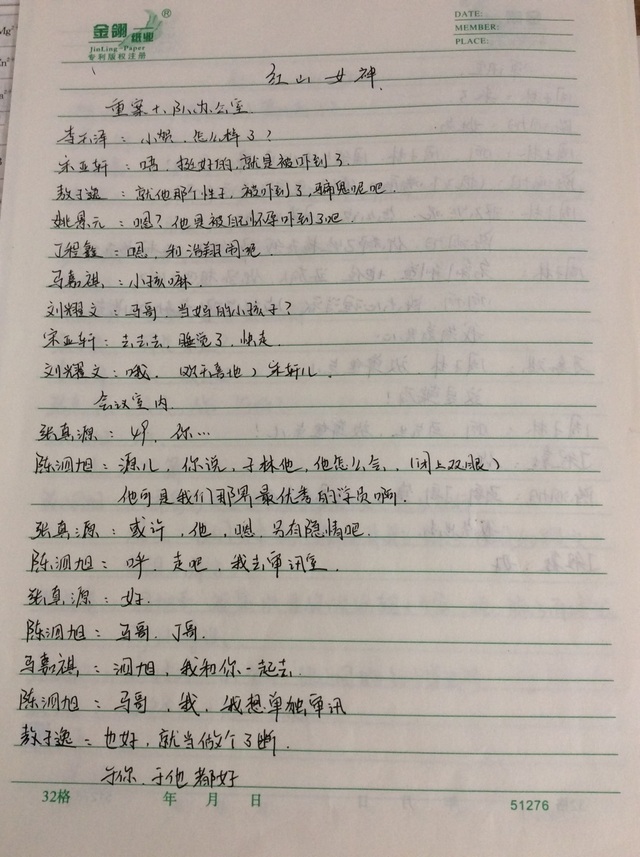 金翎纸业®
JinLing-Paper
专利版权注册
DATE:
MEMBER:
PLACE:
红山女神
重案十队办公室
李天泽：小烦，怎么样了？
宋亚轩：唔，挺好的，就是被吓到了.
敖子逸：就他那个性子，被吓到了，骗鬼呢吧.
姚景元：嗯？他是被自己怀孕吓到了吧.
丁程鑫：嗯，和浩翔闹呢.
马嘉祺：小孩嘛.
刘耀文：马哥，当妈的小孩子？
宋亚轩：去去去，睡觉了，快走.
刘耀文：哦，（欢天喜地）宋轩儿.
会议室内.
张真源：旭，你…
陈泗旭：源儿，你说，于林他，他怎么会，（闭上双眼）
他可是我们那界最优秀的学员啊.
张真源：或许，他，嗯，另有隐情吧.
陈泗旭：呼，走吧，我去审讯室.
张真源：好.
陈泗旭：马哥，丁哥.
马嘉祺：泗旭，我和你一起去.
陈泗旭：马哥，我，我想单独审讯
敖子逸：也好，就当做个了断.
于你，于他都好
32格 年 月 日 51276